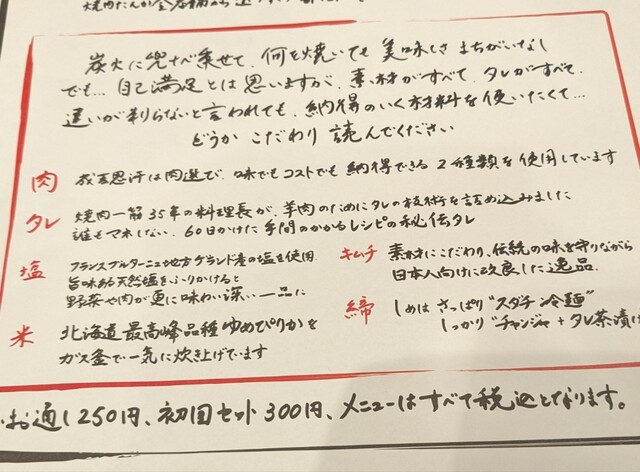 炭火に兜なべ乗せて、何を焼いても美味しさまちがいなし
でも… 自己満足とは思いますが、素材がすべて、タレがすべて、
違いが判らないと言われても、納得のいく材料を使いたくて…
どうかこだわり読んでください
肉 成吉思汗は肉選び、味でもコストでも納得できる2種類を使用しています
タレ 焼肉一筋35年の料理長が、羊肉のためにタレの技術を詰め込みました
誰もマネしない、60日かけた手間のかかるレシピの秘伝タレ
塩 フランスブルターニュ地方グランド産の塩を使用
旨味ある天然塩をふりかけると
野菜や肉が更に味わい深い一品に
キムチ 素材にこだわり、伝統の味を守りながら
日本人向けに改良した逸品
米 北海道最高峰品種ゆめぴりかを
ガス釜で一気に炊き上げています
締 しめはさっぱり"スダチ冷麺"
しっかり"チャンジャ+タレ茶漬け
お通し250円、初回セット300円、メニューはすべて税込となります。